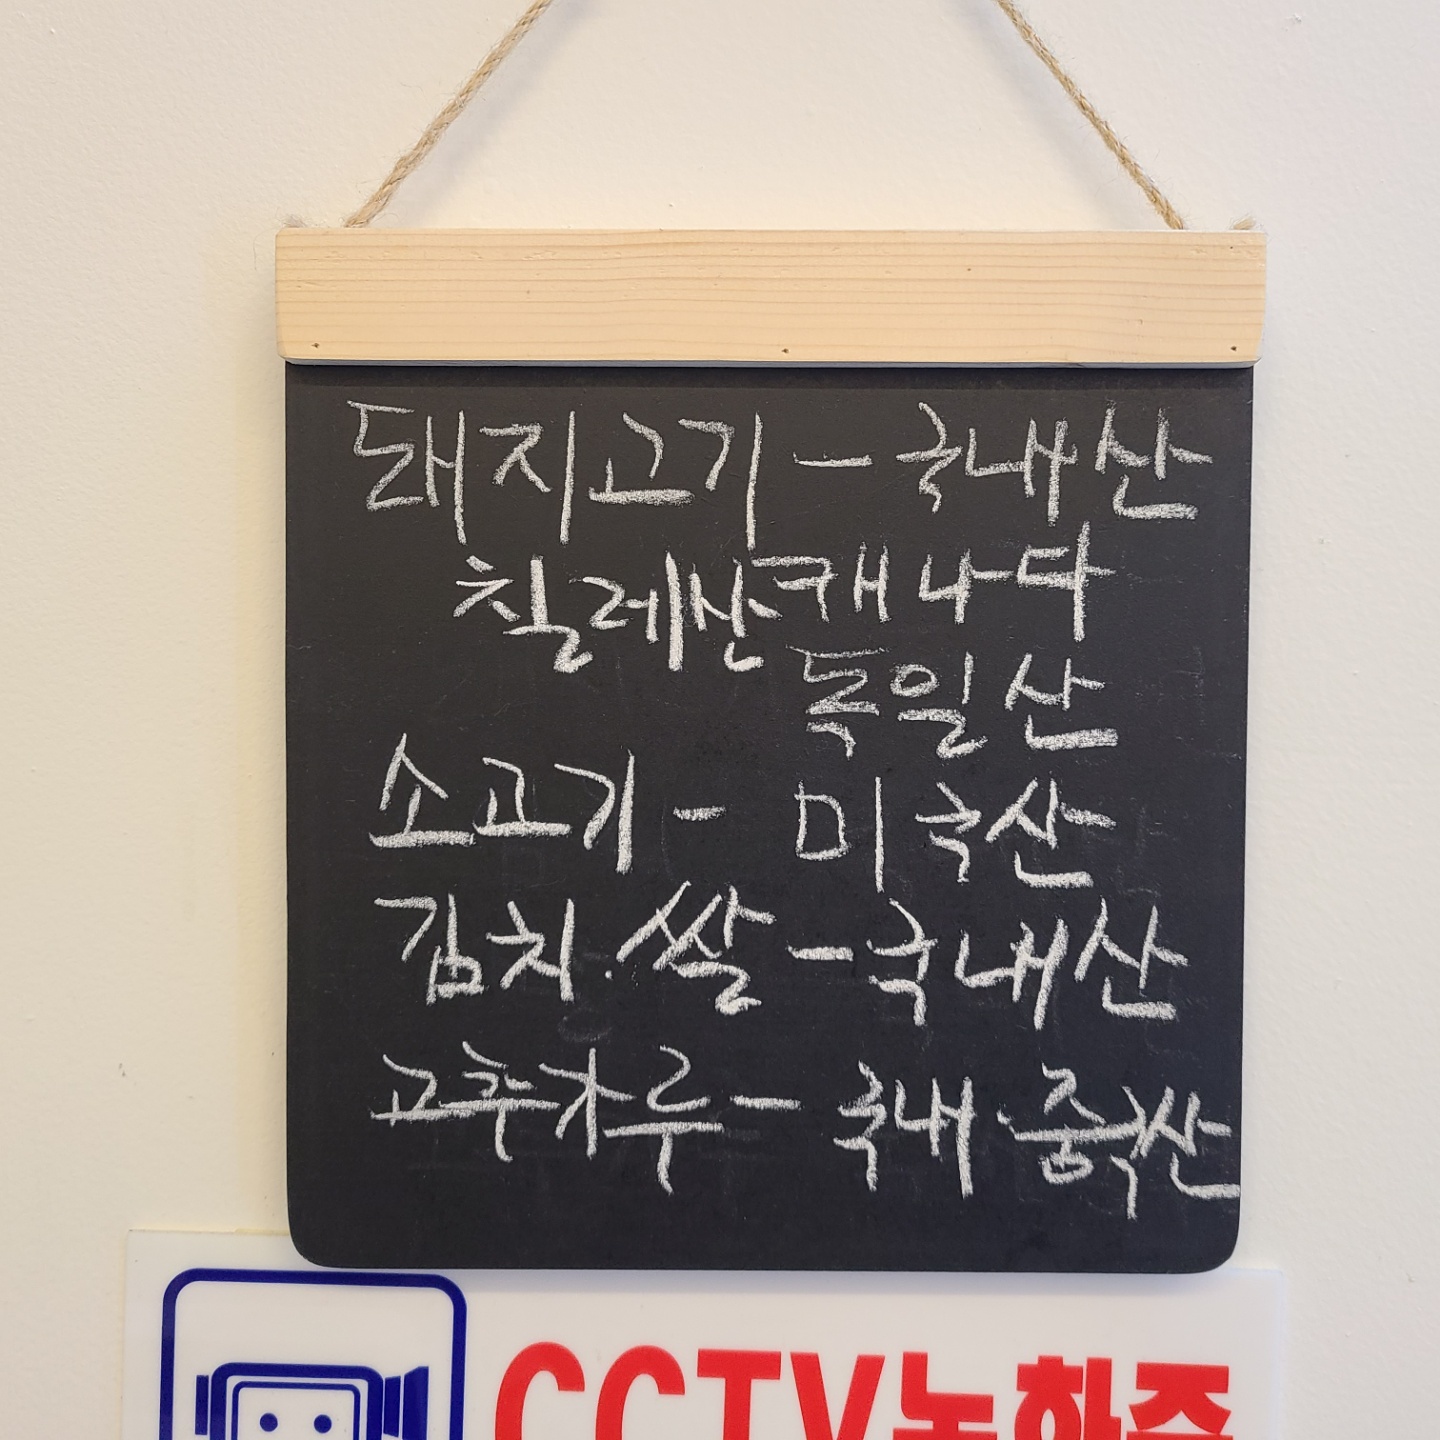 돼지고기 - 국내산
칠레산 캐나다
독일산
소고기 - 미국산
김치·쌀 - 국내산
고추가루 - 국내·중국산
CCTV녹화중